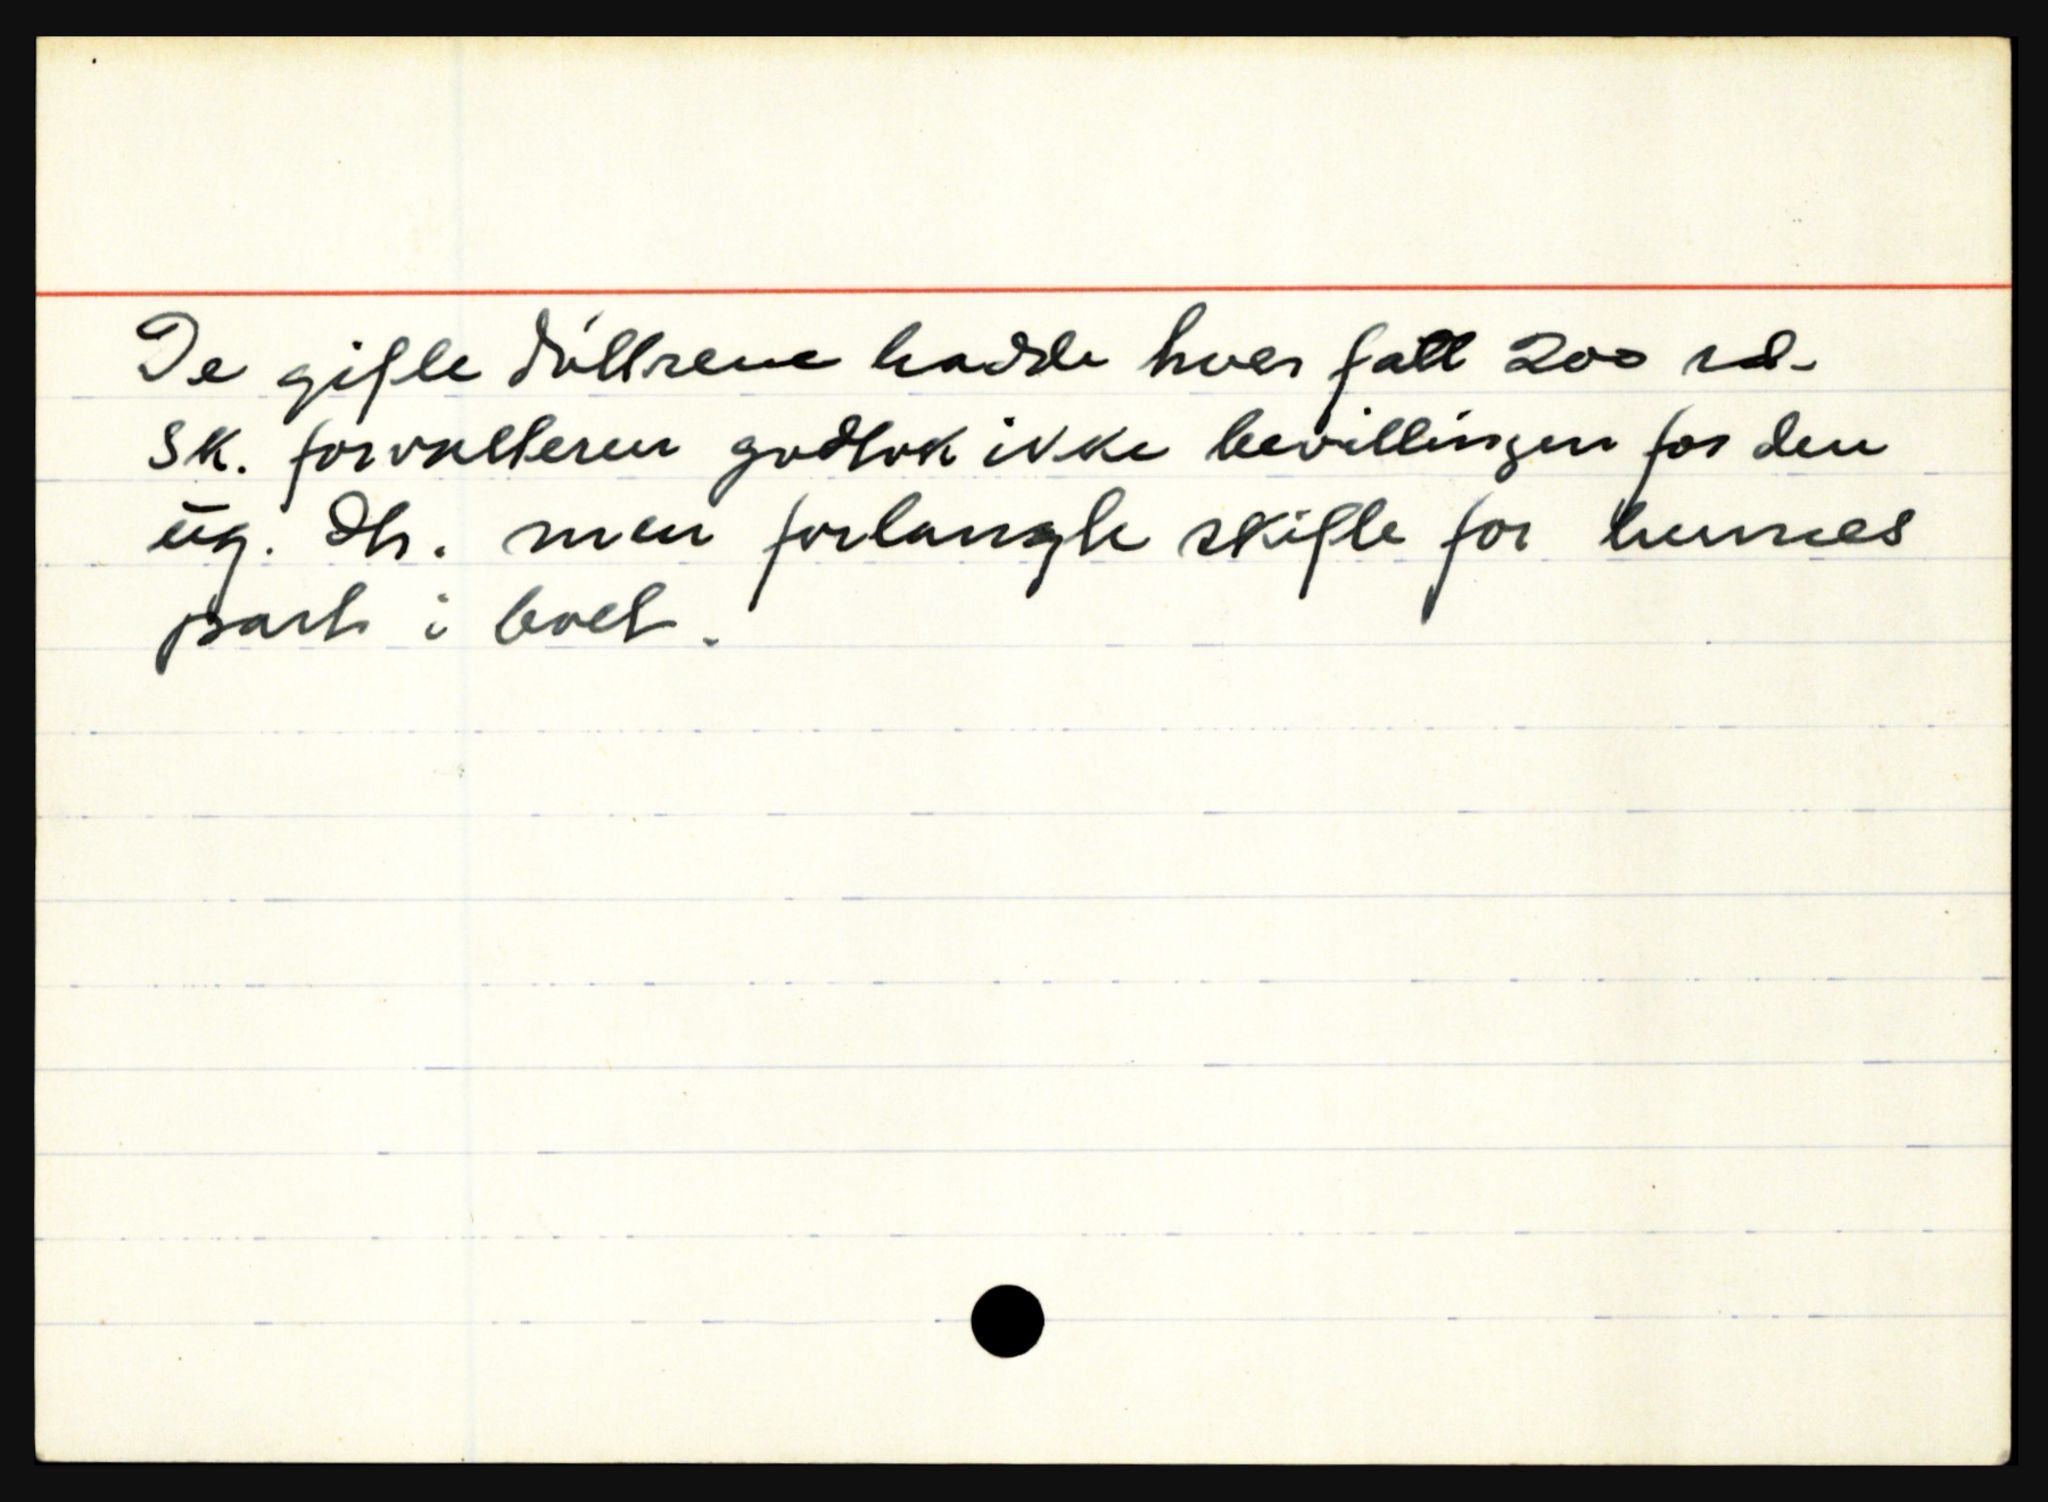 De gifte döttrene hadde hver fått 200 rd.
Sk. forvalteren godtok ikke bevillingen for den
ug. dtr. men forlangte skifte for hennes
part i boet.